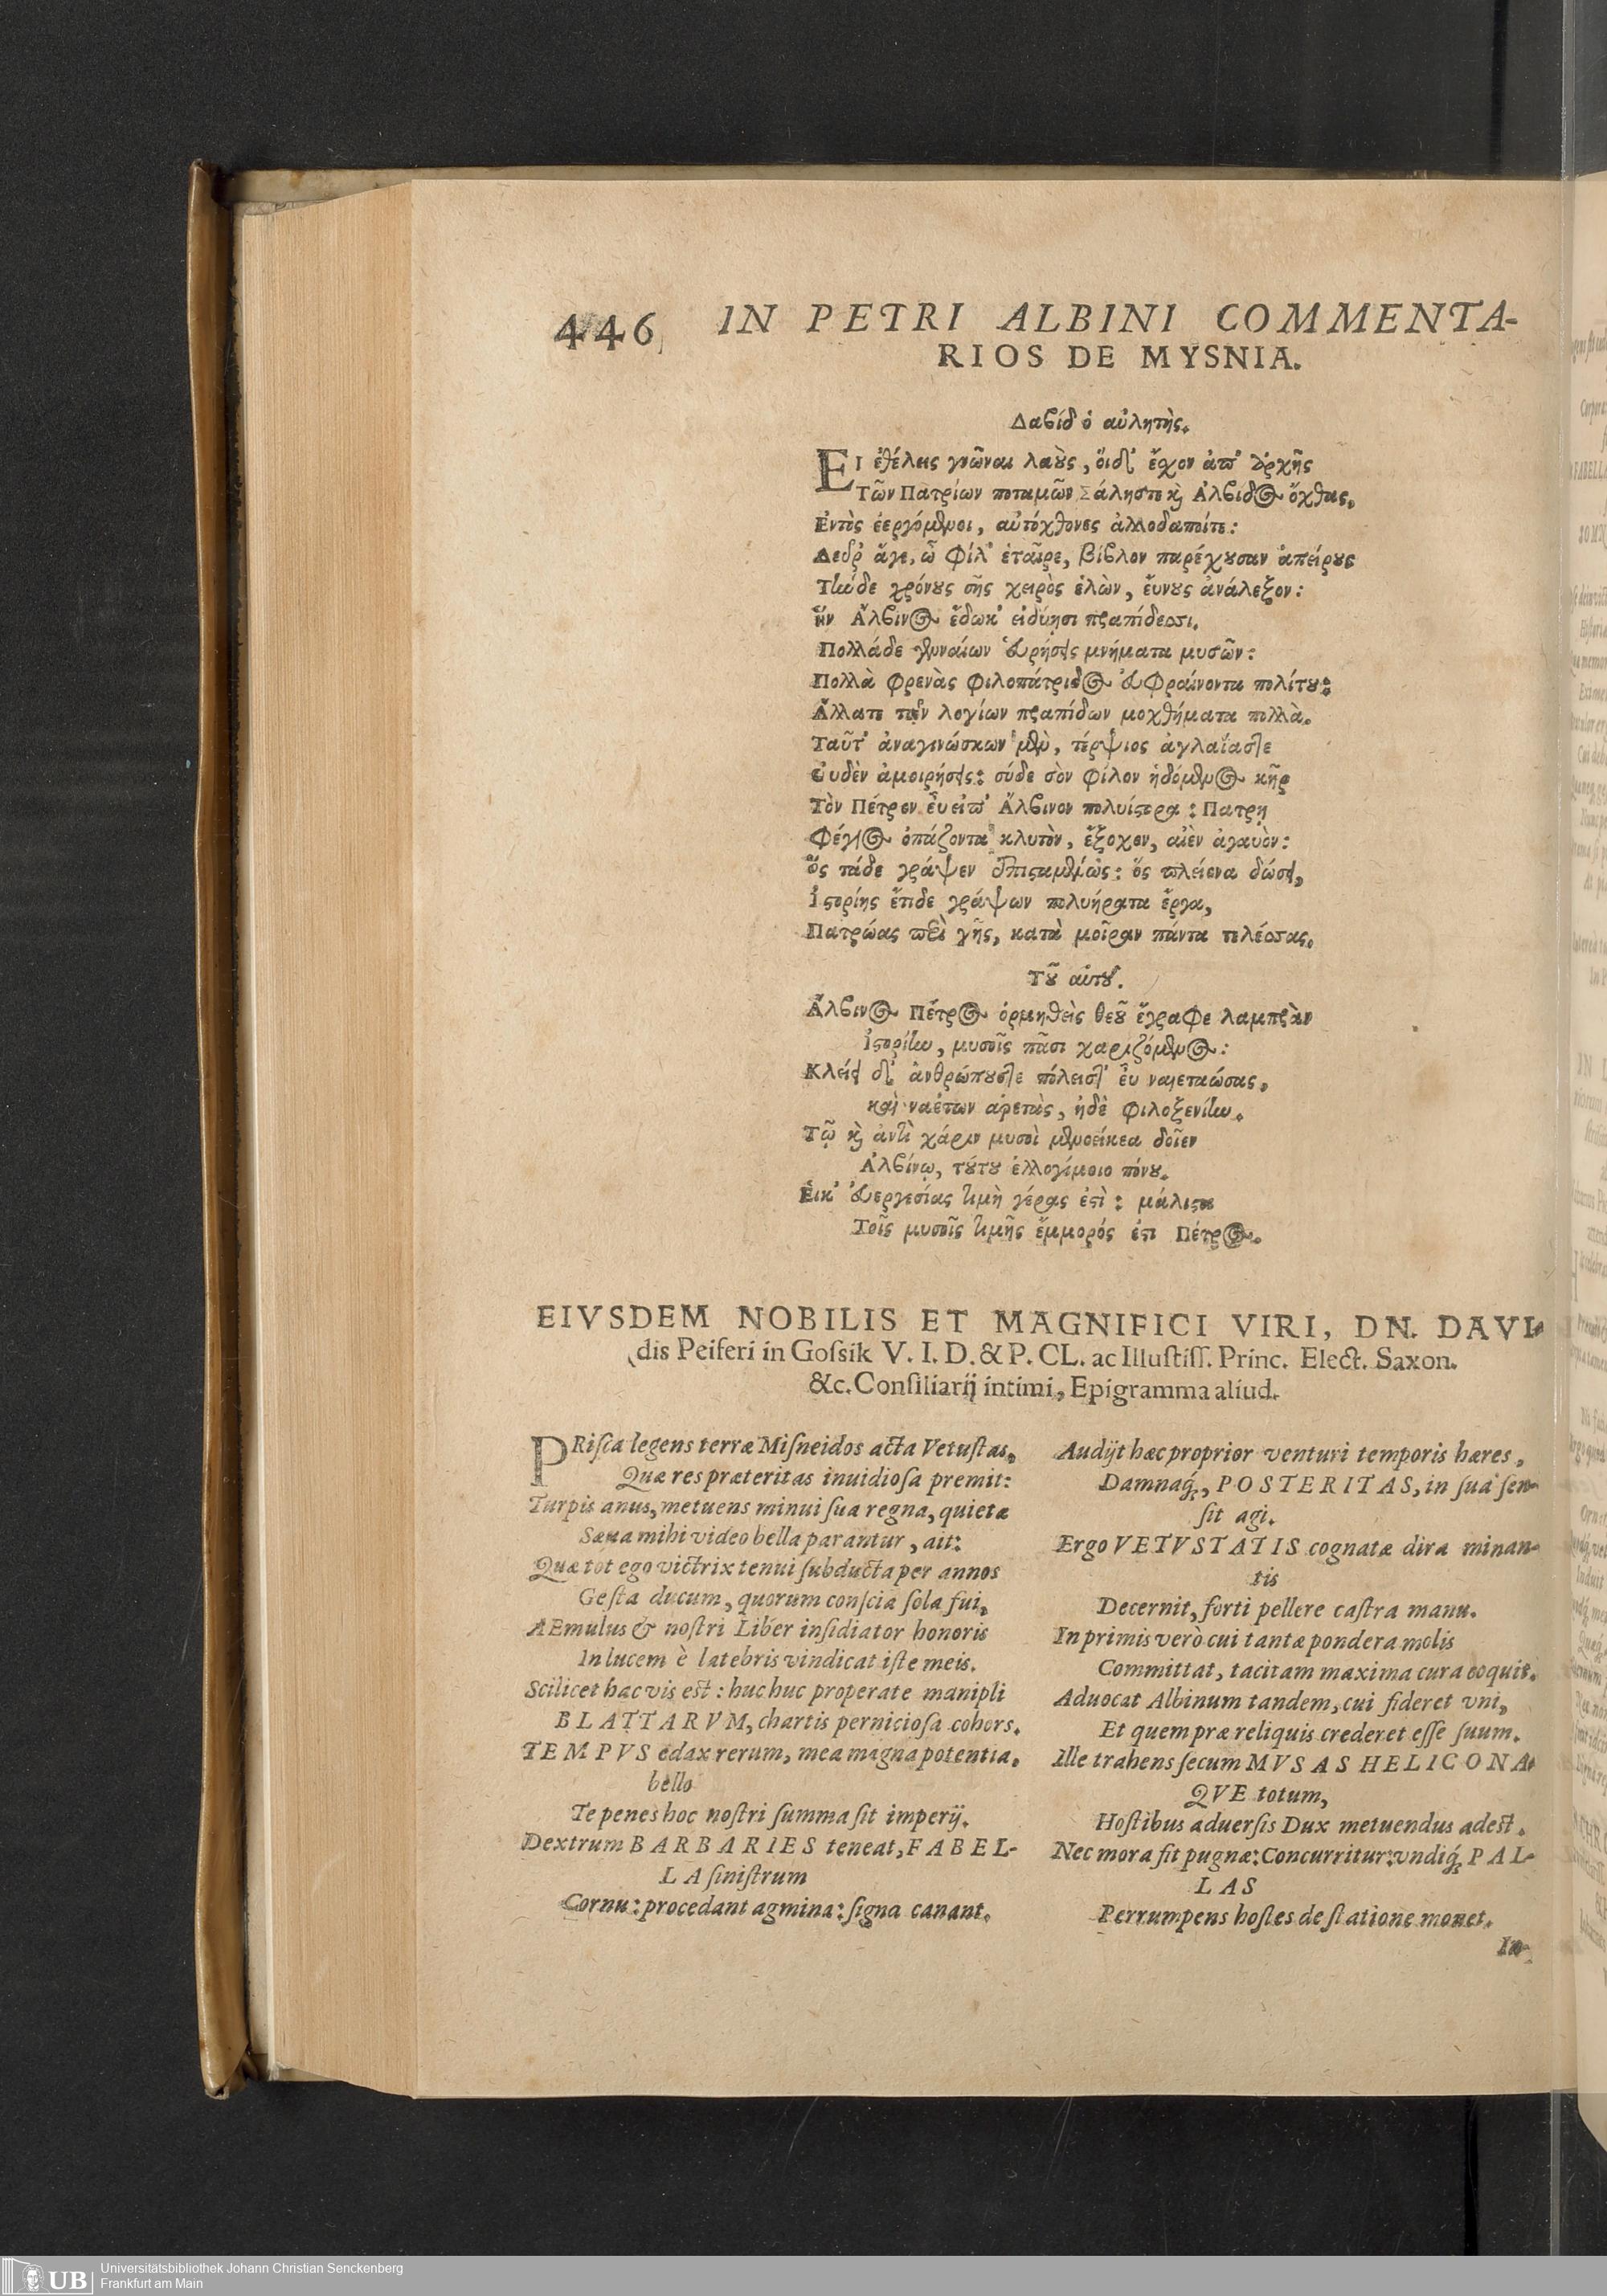 446 IN PETRI ALBINI COMMENTA-
RIOS DE MYSNIA.
Δαβίδ ὁ αὐλητὴς.
ΕΙ ἐθέλεις γνῶναι λαοὺς, ὅιδ' ἔχον ἀπ' ἀρχῆς
Τῶν Πατρίων ποταμῶν Σάληστε καὶ Ἀλβιδος ὄχθας,
Ἐντὸς ἐεργόμενοι, αὐτόχθονες ἀλλοδαποίτε:
Δεῦρ' ἄγε, ὦ φίλ' ἑταῖρε, βίβλον παρέχουσαν ἀπείρους
Τήνδε χρόνους σῆς χειρὸς ἑλὼν, ἔυνους ἀνάλεξον:
ἣν Ἄλβινος ἔδωκ' εἰδύῃσι πραπίδεσσι.
Πολλάδε γενναίων εὑρήσεις μνήματα μυσῶν:
Πολλὰ φρενὰς φιλοπάτριδος εὐφραίνοντα πολίτου:
Ἄλλατε τῶν λογίων πραπίδων μοχθήματα πολλὰ.
Ταῦτ' ἀναγινώσκων μὲν, τέρψιος ἀγλαΐαστε
Οὐδὲν ἀμοιρήσεις: σύδε σὸν φίλον ἡδόμενος κῆρ
Τὸν Πέτρον εὖ εἰπ' Ἄλβινον πολυίστορα: Πατρη
Φέγγος ὀπάζοντα κλυτὸν, ἔξοχον, αἰὲν ἀγαυὸν:
ὃς τάδε γράψεν ἐπισταμένως: ὅς πλείονα δώσει,
Ἱστορίης ἔτιδε γράψων πολυήρατα ἔργα,
Πατρώας περὶ γῆς, κατὰ μοῖραν πάντα τελέσσας.
Τοῦ αὐτοῦ.
Ἄλβινος Πέτρος ὁρμηθεὶς θεοῦ ἔγραφε λαμπρὰν
Ἱστορίην, μυσοῖς πᾶσι χαριζόμενος:
Κλείει δ' ἀνθρώπουστε πόλεισθ' εὖ ναιεταώσας,
καὶ ναέτων ἀρετὰς, ἠδὲ φιλοξενίην.
Τῷ καὶ ἀντὶ χάριν μυσοὶ μενοεικέα δοῖεν
Ἀλβίνῳ, τούτου ἐλλογίμοιο πόνου.
Εἰκ' εὐεργεσίας τιμὴ γέρας ἐστὶ: μάλιστα
Τοῖς μυσοῖς τιμῆς ἔμμορός ἐστι Πέτρος.
EIVSDEM NOBILIS ET MAGNIFICI VIRI, DN. DAVI-
dis Peiferi in Goſsik V. I. D. & P. CL. ac Illuſtiſſ. Princ. Elect. Saxon.
&c. Conſiliarij intimi, Epigramma aliud.
PRiſca legens terræ Miſneidos acta Vetuſtas,
Quæ res præteritas inuidioſa premit:
Turpis anus, metuens minui ſua regna, quietæ
Sæua mihi video bella parantur, ait:
Quæ tot ego victrix tenui ſubducta per annos
Geſta ducum, quorum conſcia ſola fui,
AEmulus & noſtri Liber inſidiator honoris
In lucem è latebris vindicat iſte meis.
Scilicet hac vis est: huc huc properate manipli
BLATTARVM, chartis pernicioſa cohors.
TEMPVS edax rerum, mea magna potentia,
bello
Te penes hoc noſtri ſumma ſit imperij.
Dextrum BARBARIES teneat, FABEL-
LA ſiniſtrum
Cornu: procedant agmina: ſigna canant.
Audijt hæc proprior venturi temporis hæres,
Damnaq́;, POSTERITAS, in ſua ſen-
ſit agi.
Ergo VETVSTATIS cognatæ dira minan-
tis
Decernit, forti pellere caſtra manu.
In primis verò cui tantæ pondera molis
Committat, tacitam maxima cura coquit.
Aduocat Albinum tandem, cui fideret vni,
Et quem præ reliquis crederet eſſe ſuum.
Ille trahens ſecum MVSAS HELICONA-
QVE totum,
Hoſtibus aduerſis Dux metuendus adest.
Nec mora fit pugnæ: Concurritur: vndiq́; PAL-
LAS
Perrumpens hoſtes de ſtatione monet.
In-
UB Universitätsbibliothek Johann Christian Senckenberg
Frankfurt am Main